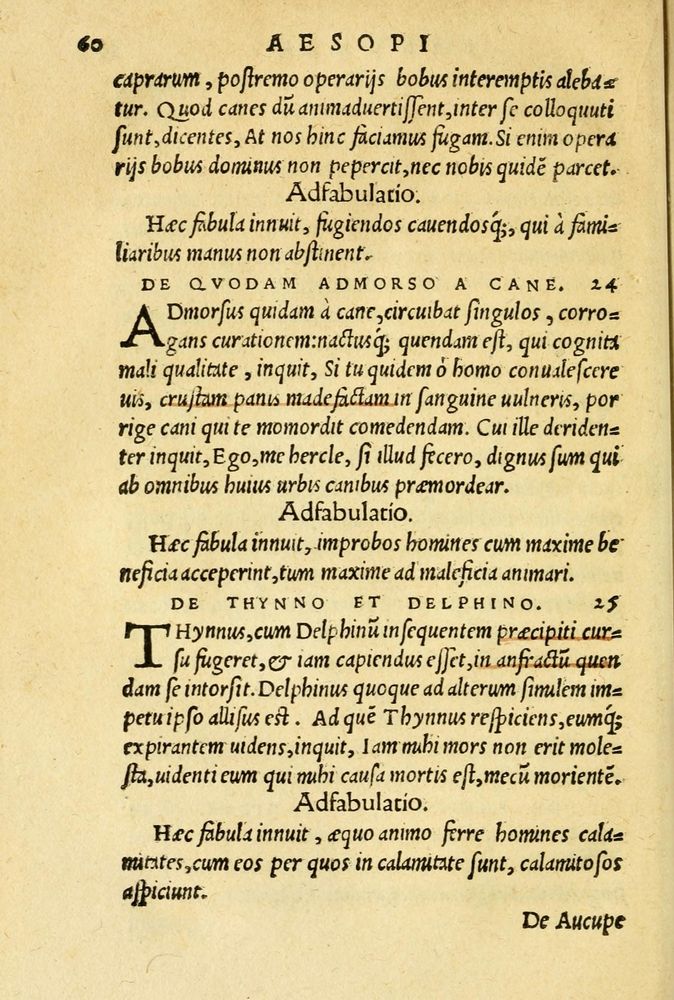 60 AESOPI
caprarum, postremo operarijs bobus interemptis aleba=
tur. Quod canes dū animaduertissent, inter se colloquuti
sunt, dicentes, At nos hinc faciamus fugam. Si enim opera
rijs bobus dominus non pepercit, nec nobis quidē parcet.
Adfabulatio.
Hæc fabula innuit, fugiendos cauendosq́;, qui à fami=
liaribus manus non abstinent.
DE QVODAM ADMORSO A CANE. 24
ADmorsus quidam à cane, circuibat singulos, corro=
gans curationem: nactusq́; quendam est, qui cognita
mali qualitate, inquit, Si tu quidem ô homo conualescere
uis, crustam panis madefactam in sanguine uulneris, por
rige cani qui te momordit comedendam. Cui ille deriden=
ter inquit, Ego, me hercle, si illud fecero, dignus sum qui
ab omnibus huius urbis canibus præmordear.
Adfabulatio.
Hæc fabula innuit, improbos homines cum maxime be
neficia acceperint, tum maxime ad maleficia animari.
DE THYNNO ET DELPHINO. 25
THynnus, cum Delphinū insequentem præcipiti cur=
su fugeret, & iam capiendus esset, in anfractū quen
dam se intorsit. Delphinus quoque ad alterum similem im=
petu ipso allisus est. Ad quē Thynnus respiciens, eumq́;
expirantem uidens, inquit, Iam mihi mors non erit mole=
sta, uidenti eum qui mihi causa mortis est, mecū morientē.
Adfabulatio.
Hæc fabula innuit, æquo animo ferre homines cala=
mitates, cum eos per quos in calamitate sunt, calamitosos
aspiciunt.
De Aucupe